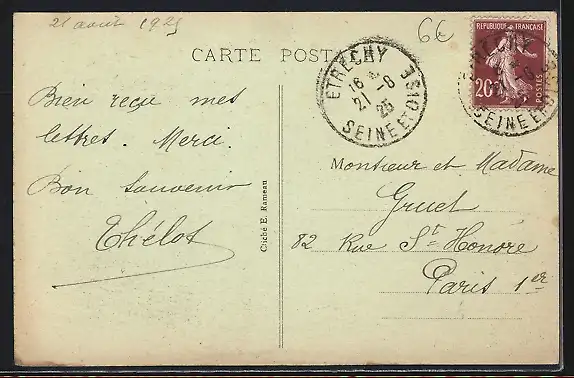 21 août 1925
6E
CARTE POSTALE
ETRECHY
16 *
21 - 8
25
SEINE ET OISE
REPUBLIQUE FRANÇAISE
20c
POSTES
Bien reçu mes
lettres. Merci.
Bon souvenir
Thélot
Cliché E. Rameau
Monsieur et Madame
Gruel
82 Rue St-Honoré
Paris 1er